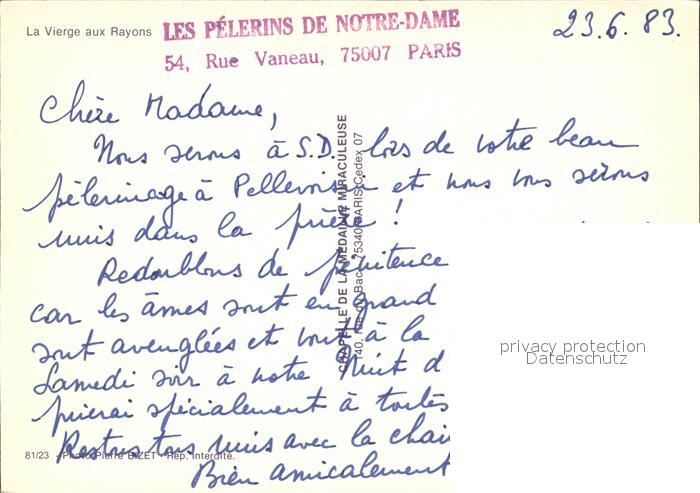 La Vierge aux Rayons
LES PÉLERINS DE NOTRE-DAME
54, Rue Vaneau, 75007 PARIS
23.6.83.
Chère Madame,
Nous serons à S.D. lors de votre beau
pèlerinage à Pellevoisin et nous vous serons
unis dans la prière !
Redoublons de pénitence
car les âmes sont en grand
sont aveuglées et vont à la
Samedi soir à notre Nuit d
prierai spécialement à toutes
Restons tous unis avec la chaî
Bien amicalement
CHAPELLE DE LA MÉDAILLE MIRACULEUSE
140, rue du Bac - 75340 PARIS Cedex 07
81/23 - Photo Pierre BIZET - Rep. Interdite.
privacy protection
Datenschutz